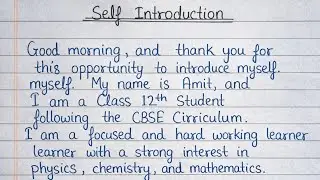 Self Introduction
Good morning, and thank you for
this opportunity to introduce myself.
myself. My name is Amit, and
I am a Class 12th Student
following the CBSE Cirriculum.
I am a focused and hard working learner
learner with a strong interest in
physics, chemistry, and mathematics.